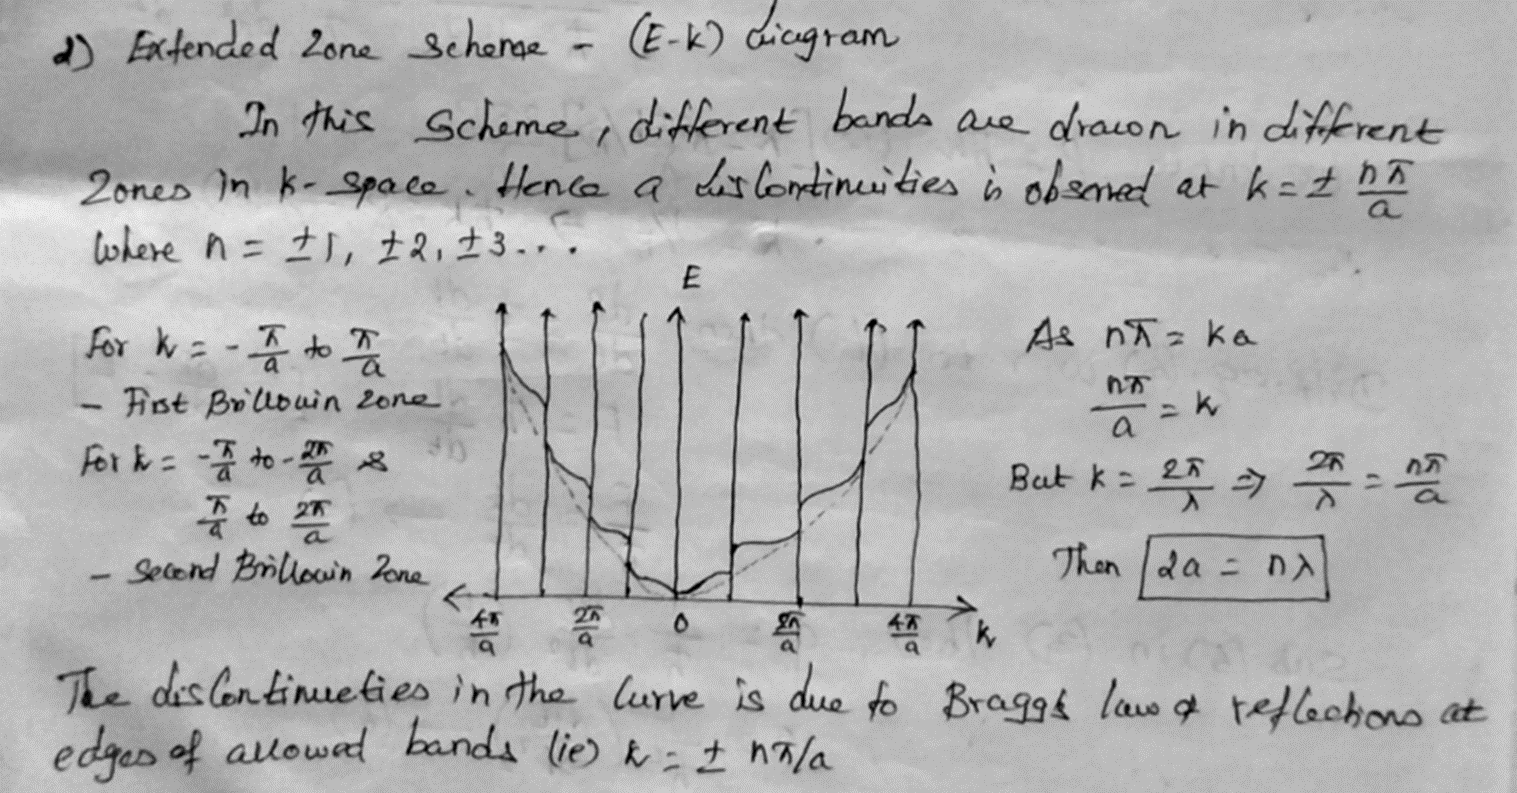 d) Extended Zone Scheme - (E-k) diagram
In this Scheme, different bands are drawn in different
Zones in k-space. Hence a discontinuities is observed at k = ± nπ/a
where n = ±1, ±2, ±3...
E
For k = -π/a to π/a
- First Brillouin Zone
For k = -π/a to -2π/a &
π/a to 2π/a
- Second Brillouin Zone
4π/a 2π/a 0 2π/a 4π/a k
As nπ = ka
nπ/a = k
But k = 2π/λ ⇒ 2π/λ = nπ/a
Then 2a = nλ
The discontinueties in the curve is due to Braggs law of reflections at
edges of allowed bands (ie) k = ± nπ/a